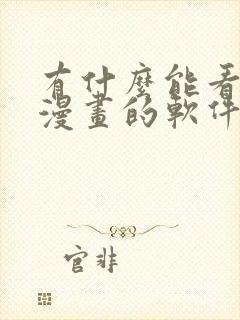 有什麼能看
漫畫的軟件
官非